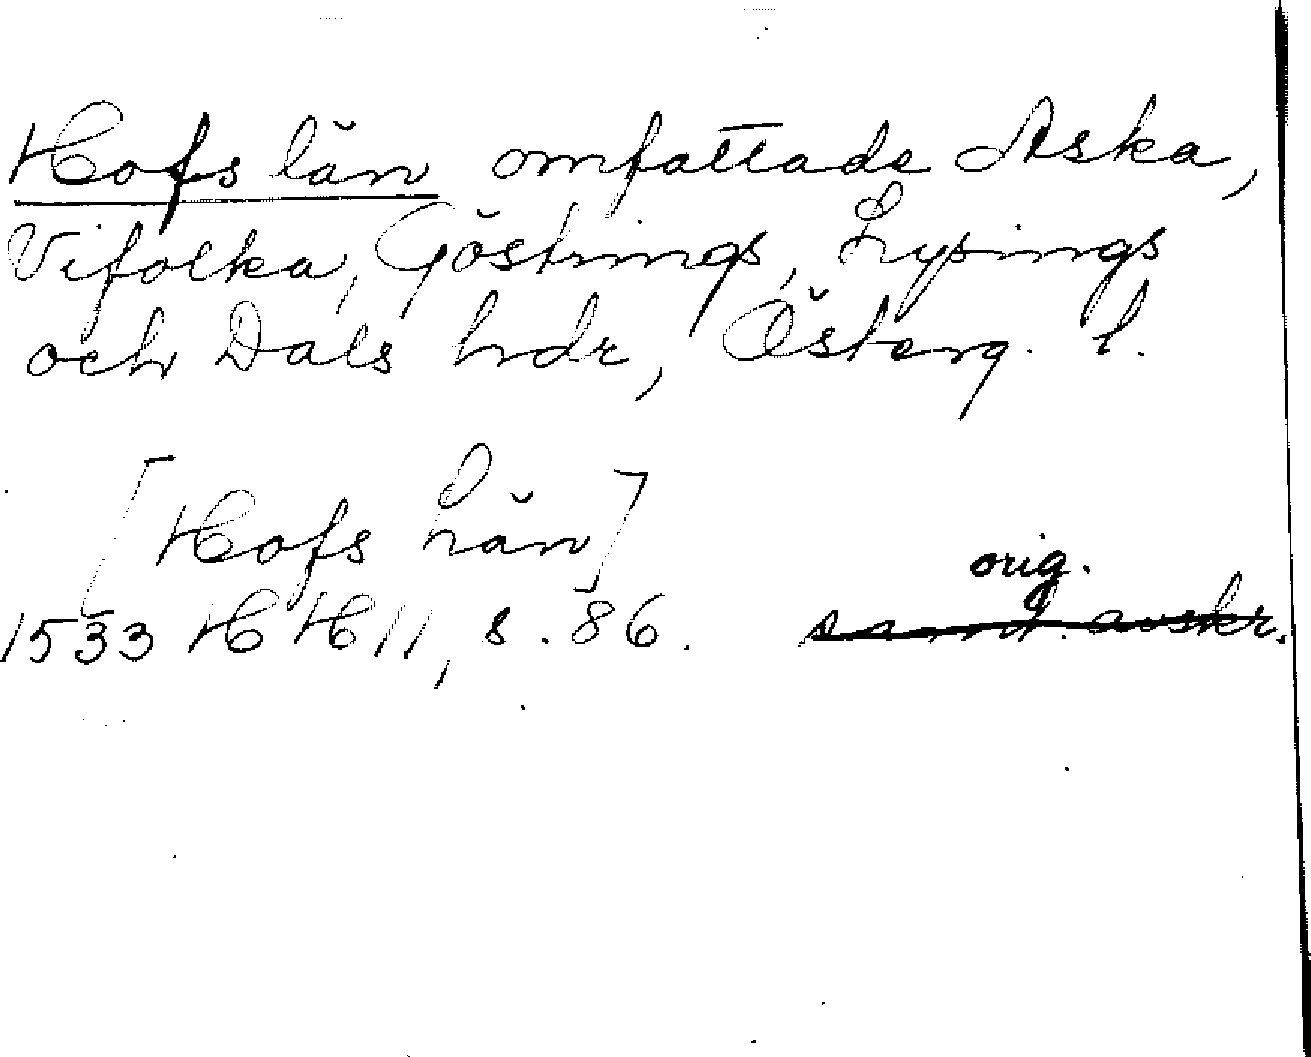 Hofs län omfattade Aska,
Vifolka, Göstrings, Lysings
och Dals hdr, Österg. l.
[Hofs Län]
orig.
1533 HH 11, s. 86. samt. avskr.